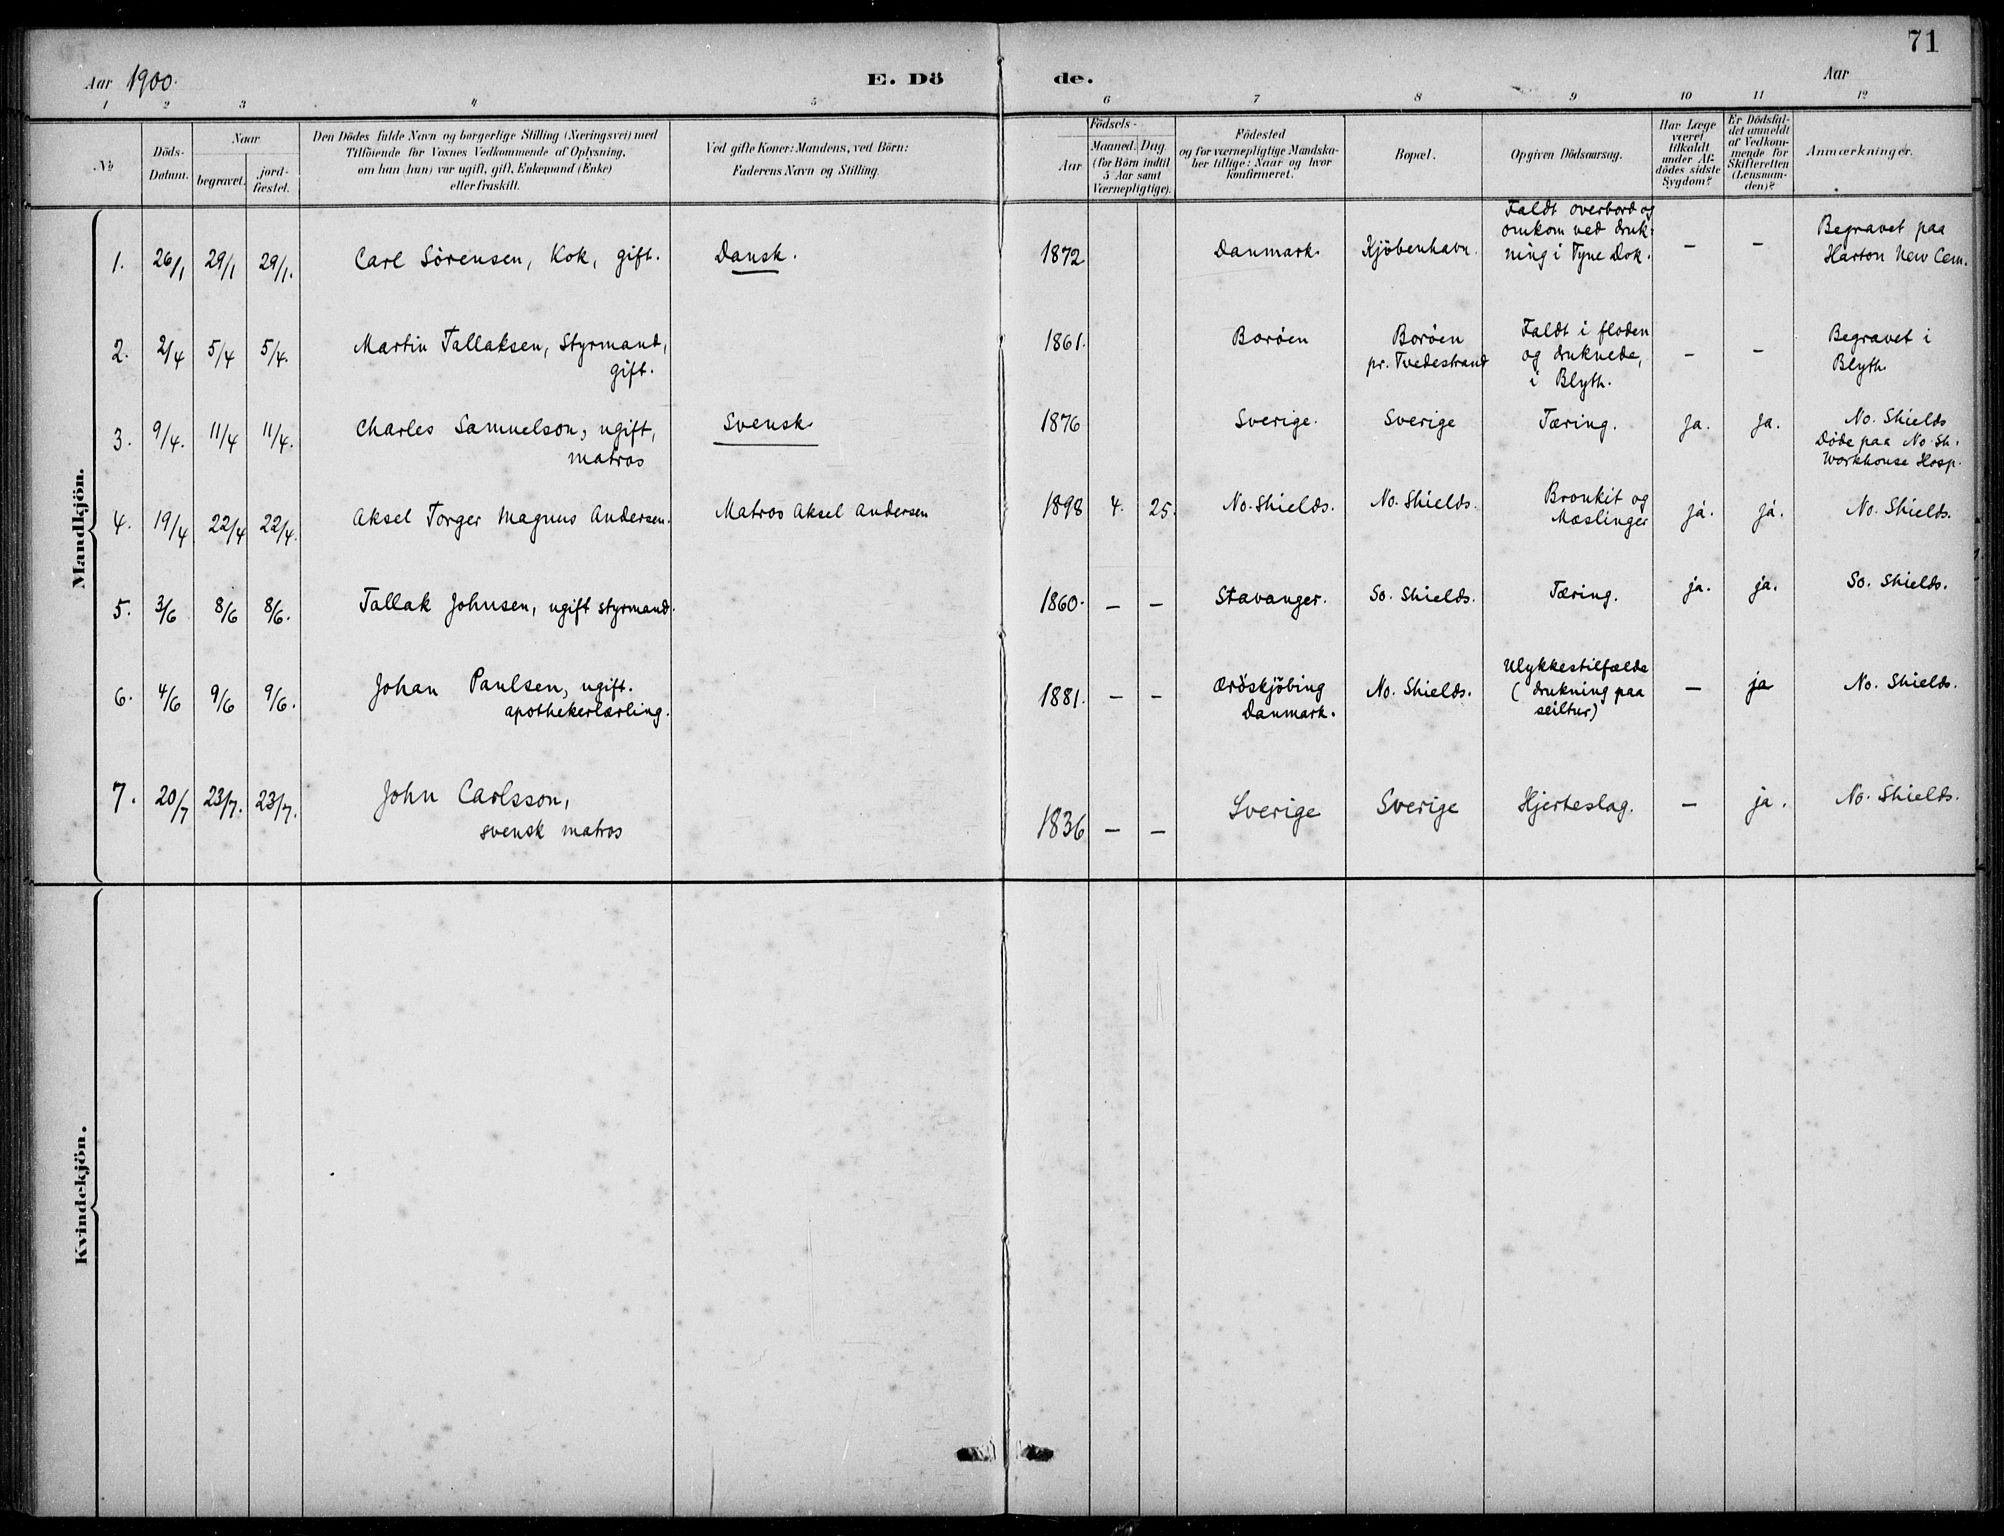 71
Aar 1900.
E. Dö de.
Aar
1 2 3 4 5 6 7 8 9 10 11 12
No
Döds-
Datum.
Naar
begravet.
jord-
fæstet.
Den Dödes fulde Navn og borgerlige Stilling (Næringsvei) med
Tilföiende for Voxnes Vedkommende af Oplysning,
om han (hun) var ugift, gift, Enkemand (Enke)
eller fraskilt.
Ved gifte Koner: Mandens, ved Börn:
Faderens Navn og Stilling.
Födsels-
Aar
Maaned.
Dag.
(for Börn indtil
5 Aar samt
Værnepligtige).
Födested
og for værnepligtige Mandska-
ber tillige: Naar og hvor
konfirmeret.
Bopæl.
Opgiven Dödsaarsag.
Har Læge
været
tilkaldt
under Af-
dödes sidste
Sygdom?
Er Dödsfal-
det anmeldt
af Vedkom-
mende for
Skifteretten
(Lensman-
den)?
Anmærkninger.
Mandkjön.
1. 26/1 29/1 29/1. Carl Sörensen, Kok, gift. Dansk. 1872 Danmark. Kjöbenhavn. Faldt overbord og
omkom ved druk-
ning i Tyne Dok. – – Begravet paa
Harton New Cem.
2. 2/4 5/4 5/4. Martin Tallaksen, Styrmand,
gift. 1861. Boröen Boröen
pr. Tvedestrand Faldt i floden
og druknede,
i Blyth. – – Begravet i
Blyth.
3. 9/4. 11/4 11/4. Charles Samuelson, ugift,
matros Svensk. 1876 Sverige. Sverige Tæring. ja. ja. No. Shields
Döde paa No. Sh.
Workhouse Hosp.
4. 19/4 22/4 22/4. Aksel Torger Magnus Andersen. Matros Aksel Andersen 1898 4. 25. No. Shields. No. Shields. Bronkit og
Mæslinger ja. ja. No. Shields.
5. 3/6 8/6 8/6. Tallak Johnsen, ugift styrmand. 1860. – – Stavanger. So. Shields. Tæring. ja. ja. So. Shields.
6. 4/6 9/6 9/6. Johan Paulsen, ugift.
apothekerlærling. 1881. – – Æröskjöbing
Danmark. No. Shields. Ulykkestilfælde
(drukning paa
seiltur) – ja No. Shields.
7. 20/7 23/7. 23/7. John Carlsson,
svensk matros 1836 – – Sverige Sverige Hjerteslag. – ja. No. Shields.
Kvindekjön.